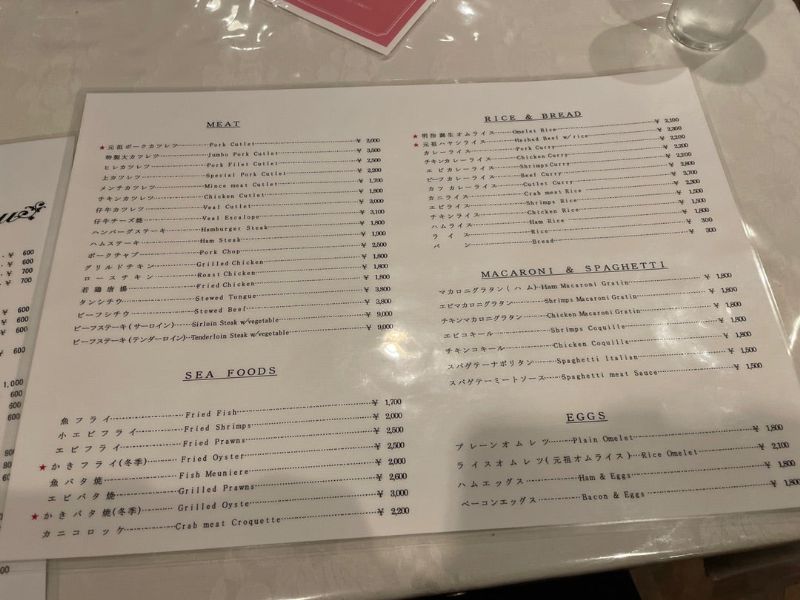 MEAT
★元祖ポークカツレツ Pork Cutlet ¥ 2,000
特製大カツレツ Jumbo Pork Cutlet ¥ 3,500
ヒレカツレツ Pork Filet Cutlet ¥ 2,500
上カツレツ Special Pork Cutlet ¥ 2,200
メンチカツレツ Mince meat Cutlet ¥ 1,700
チキンカツレツ Chicken Cutlet ¥ 1,800
仔牛カツレツ Veal Cutlet ¥ 3,000
仔牛チーズ焼 Veal Escalope ¥ 3,100
ハンバーグステーキ Hamburger Steak ¥ 1,800
ハムステーキ Ham Steak ¥
ポークチャプ Pork Chop ¥ 2,500
グリルドチキン Grilled Chicken ¥ 1,800
ロースチキン Roast Chicken ¥ 1,800
若鶏唐揚 Fried Chicken ¥ 1,800
タンシチウ Stewed Tongue ¥ 3,800
ビーフシチウ Stewed Beef ¥ 3,800
ビーフステーキ(サーロイン) Sirloin Steak w/vegetable ¥ 9,000
ビーフステーキ(テンダーロイン) Tenderloin Steak w/vegetable ¥ 9,000
SEA FOODS
魚フライ Fried Fish ¥ 1,700
小エビフライ Fried Shrimps ¥ 2,000
エビフライ Fried Prawns ¥ 2,500
★かきフライ(冬季) Fried Oyster ¥ 2,500
魚バタ焼 Fish Meuniere ¥ 2,000
エビバタ焼 Grilled Prawns ¥ 2,600
★かきバタ焼(冬季) Grilled Oyste ¥ 3,000
カニコロッケ Crab meat Croquette ¥ 2,200
RICE & BREAD
★明治誕生オムライス Omelet Rice ¥ 2,100
★元祖ハヤシライス Hashed Beef w/rice ¥
カレーライス Pork Curry ¥ 2,200
チキンカレーライス Chicken Curry ¥ 2,200
エビカレーライス Shrimps Curry ¥ 2,200
ビーフカレーライス Beef Curry ¥
カツカレーライス Cutlet Curry ¥ 2,700
カニライス Crab meat Rice ¥ 2,200
エビライス Shrimps Rice ¥
チキンライス Chicken Rice ¥
ハムライス Ham Rice ¥ 1,500
ライス Rice ¥ 300
パン Bread ¥ 300
MACARONI & SPAGHETTI
マカロニグラタン(ハム) Ham Macaroni Gratin ¥ 1,800
エビマカロニグラタン Shrimps Macaroni Gratin ¥ 1,800
チキンマカロニグラタン Chicken Macaroni Gratin ¥ 1,800
エビコキール Shrimps Coquille ¥ 1,800
チキンコキール Chicken Coquille ¥ 1,800
スパゲテーナポリタン Spaghetti Italian ¥ 1,500
スパゲテーミートソース Spaghetti meat Sauce ¥ 1,500
EGGS
プレーンオムレツ Plain Omelet ¥ 1,800
ライスオムレツ(元祖オムライス) Rice Omelet ¥ 2,100
ハムエッグス Ham & Eggs ¥ 1,800
ベーコンエッグス Bacon & Eggs ¥ 1,800
¥ 600
¥ 600
¥ 700
¥ 700
¥ 600
¥ 600
¥ 600
¥ 600
1,000
600
600
600